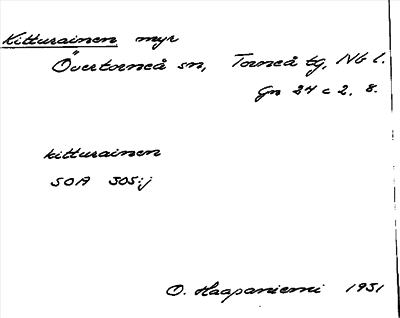 Kitturainen myr
Övertorneå sn, Torneå tg, Nb l.
Gn 24 c 2, 8.
kitturainen
SOA 305:j
O. Haapaniemi 1931